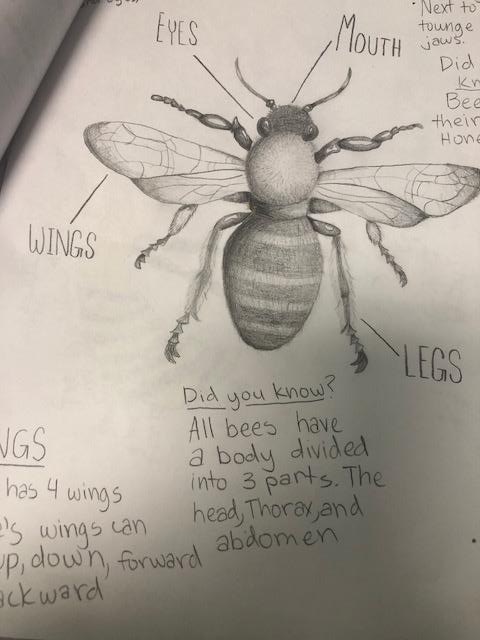 Next to
tounge
jaws.
Did
kn
Bee
their
Hone
EYES
MOUTH
WINGS
LEGS
Did you know?
All bees have
a body divided
into 3 parts. The
head, Thorax, and
abdomen
NGS
has 4 wings
's wings can
up, down, forward
ackward